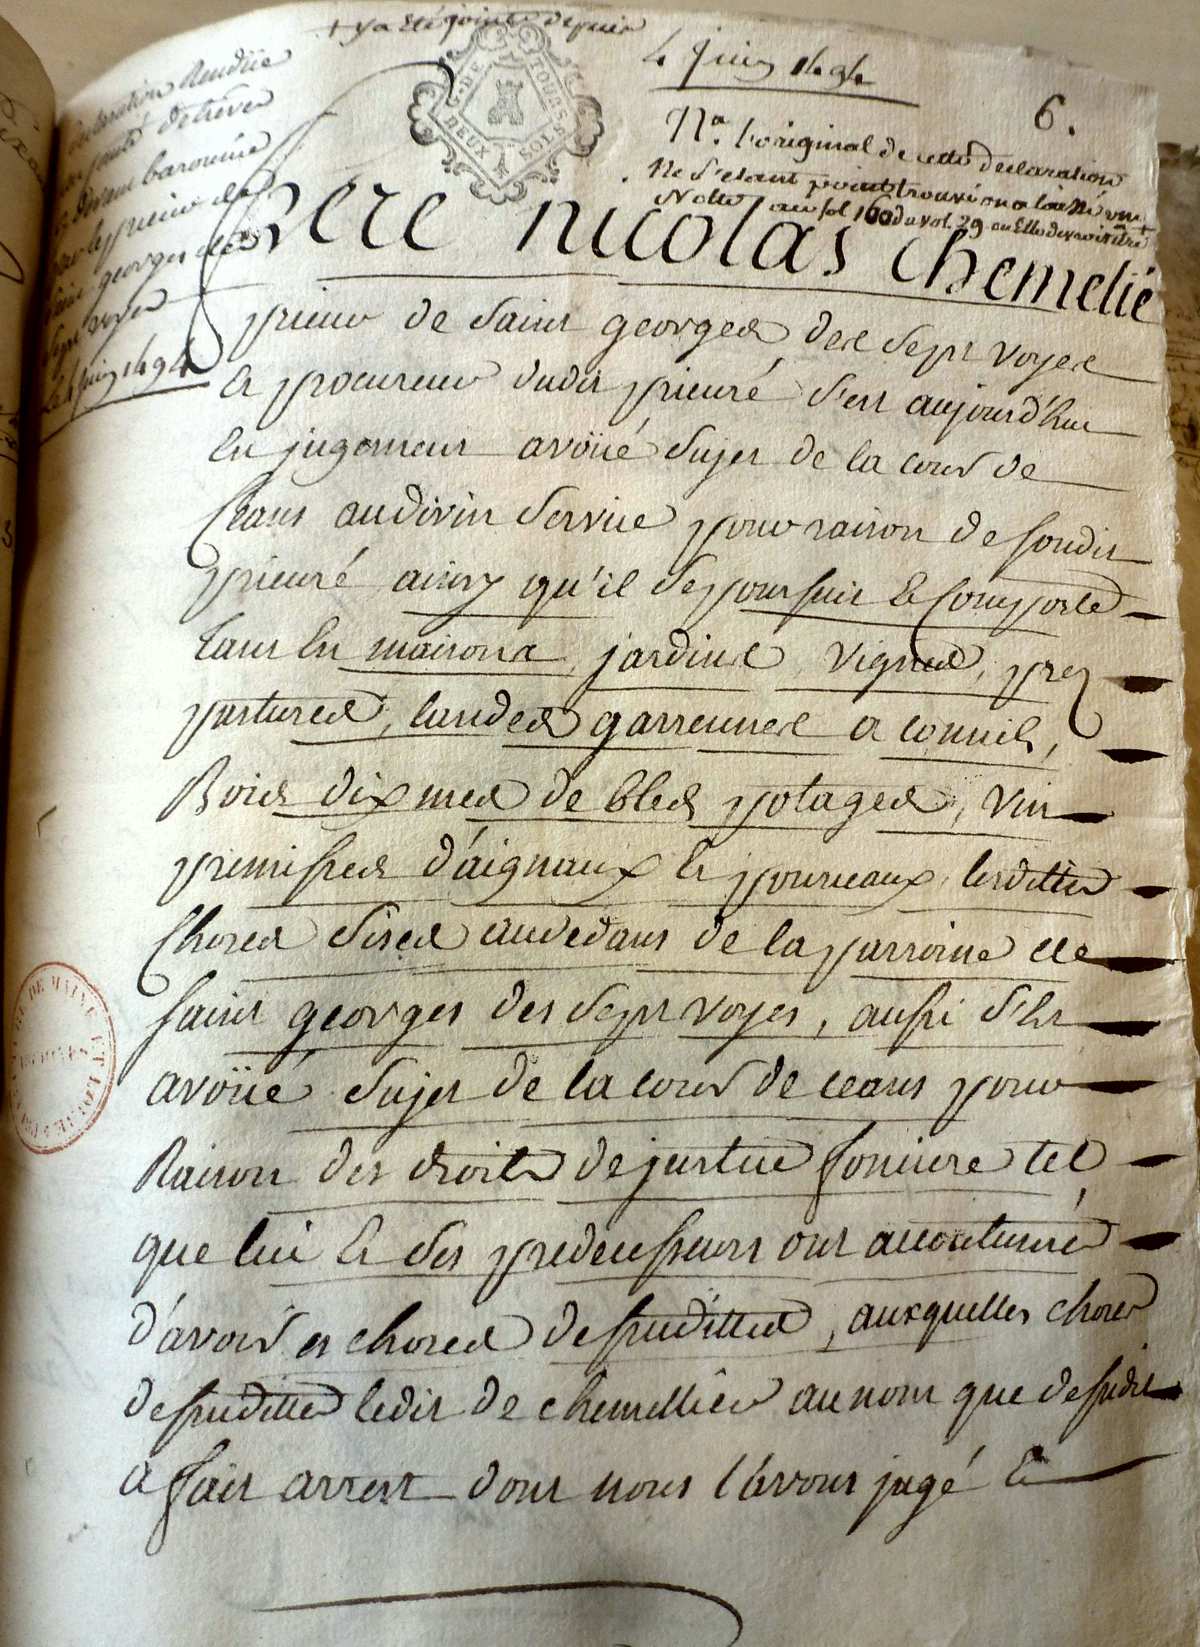 + y a eté jointe depuis
4 juin 1494
6.
Na. l'original de cette declaration
ne s'etant point trouvé on a laissé une
Notte au fol 160 du vol. 29 ou elle devroit etre +
declaration Rendüe
de treves
baronnie
par le prieur de
saint georges des
sept voyes
Le 4 juin 1494
G. DE TOURS
DEUX SOLS
frere nicolas chemelié
prieur de saint georges des sept voyes
et procureur dudit prieuré s'est aujourd'huy
en jugement avoüé sujet de la cour de
ceans au divin service pour raison de sondit
prieuré ainsy qu'il se poursuit et comporte
tant en maisons, jardins, vignes, prez
pastures, landes garrennes a connils,
Bois dixmes de bleds potages, vin
premisses d'aignaux et pourceaux, lesdittes
choses sises audedans de la parroisse de
saint georges des sept voyes, aussi s'est
avoüé sujet de la cour de ceans pour
Raison des droits de justice fonciere tel
que lui et ses predecesseurs ont accoutumé
d'avoir es choses desusdittes, auxquelles choses
desusdittes ledit de chemellier au nom que desusdit
a fait arrest dont nous l'avons jugé et